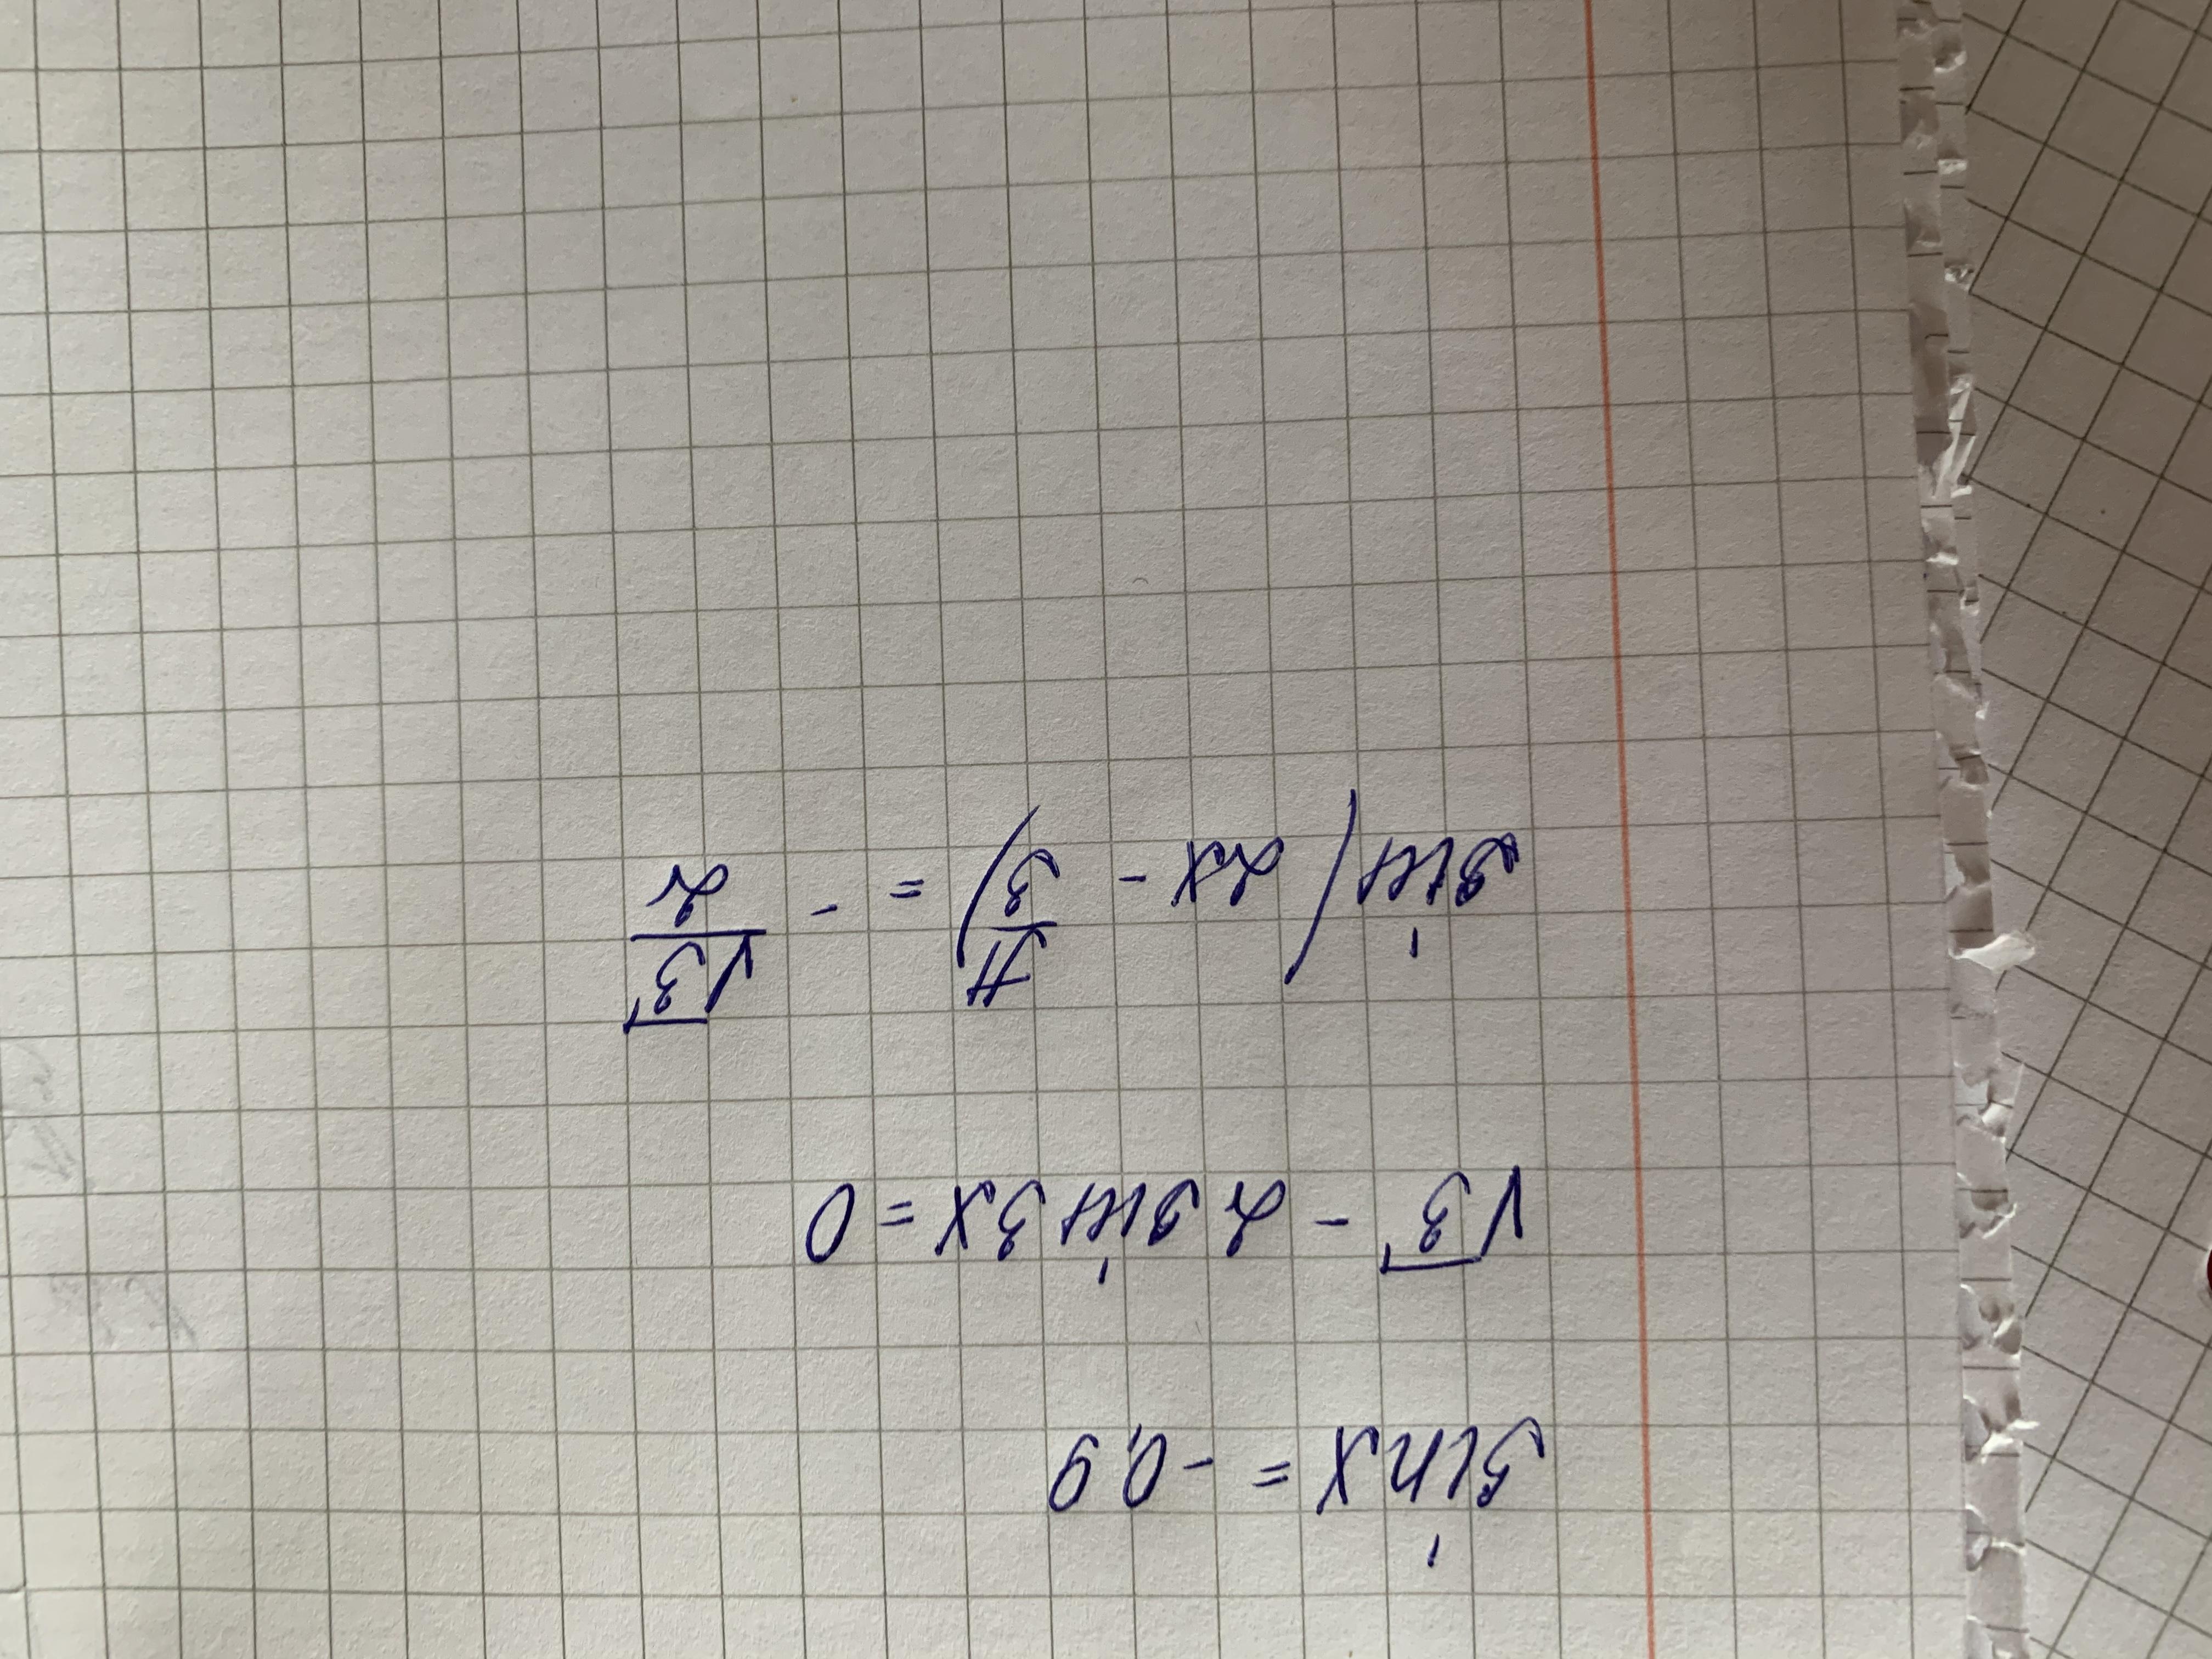 sin x = -0,9
√3 - 2 sin 3x = 0
sin(2x - π/3) = - √3/2